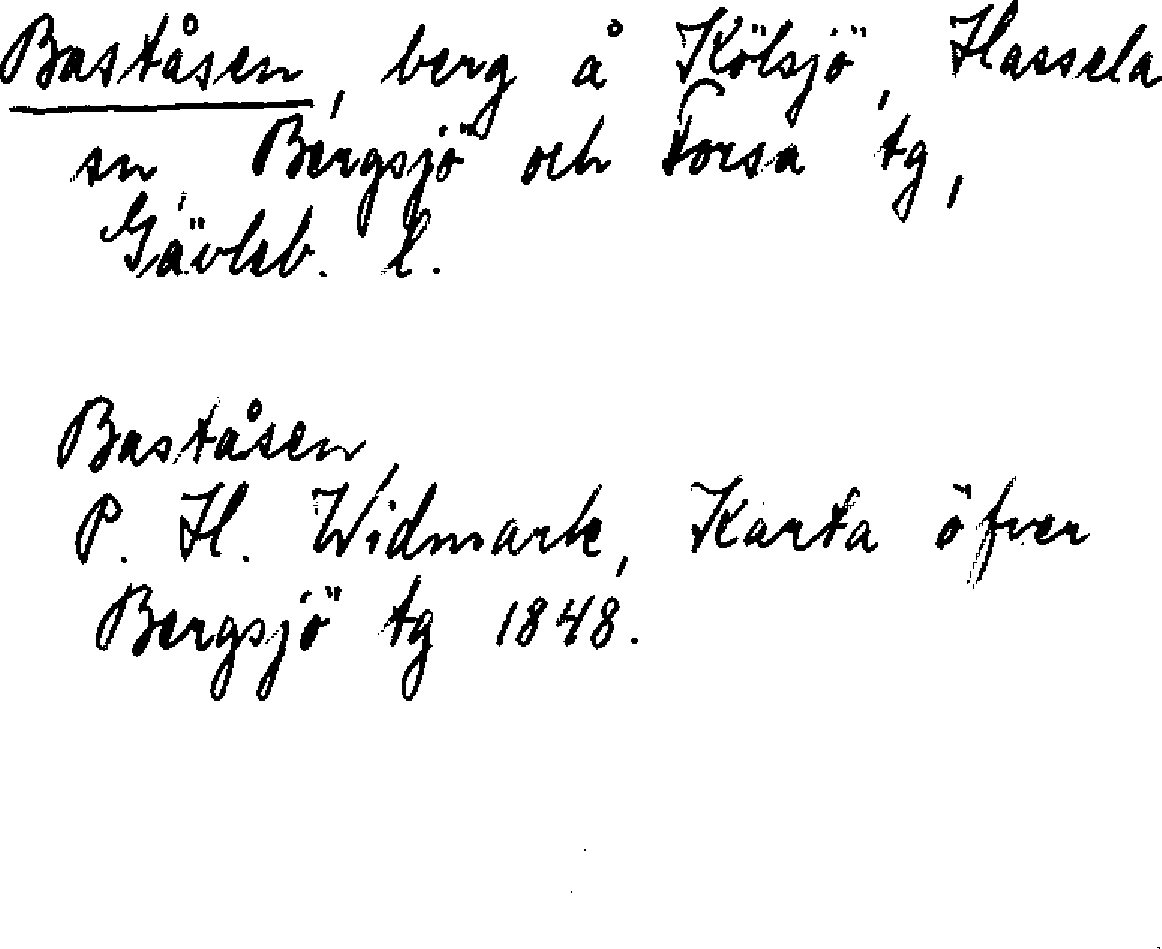 Baståsen, berg å Kölsjö, Hassela
sn, Bergsjö och Forsa tg,
Gävleb. l.
Baståsen,
P. H. Widmark, Karta öfver
Bergsjö tg 1848.